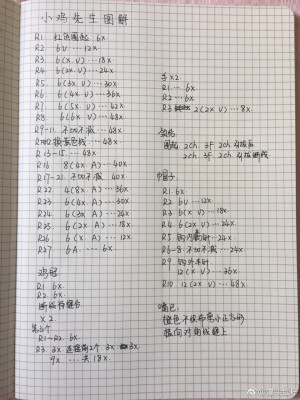 小鸡先生图解
R1. 红色围起 6x
R2 6V ... 12x
R3. 6(x V) ... 18x
R4 6(2x V) ... 24x
R5. 6(3x V) ... 30x
R6 6(4x V) ... 36x
R7. 6(5x V) ... 42x
R8 6(6x V) ... 48x
R9-11. 不加不减 ... 48x
换黄色线 ... 48x
R13-15. ... 48x
R16 8(4x A) ... 40x
R17-21. 不加不减 40x
R22 4(8x A) ... 36x
R23 6(4x A) ... 30x
R24 6(3x A) ... 24x
R25 6(2x A) ... 18x
R26 6(x A) ... 12x
R27 6A ... 6x
鸡冠
R1. 6x
R2. 6x
断线待缝合
x2
第3个
R1-R2. 6x
R3. 3x 连接前2个 3x 3x
9x ... 共18x.
手x2
R1 ... 6x
R2 ... 6x
R3 2(2x V) ... 8x
领结
围起 2ch. 3F 2ch 引拔后
2ch 3F 2ch 引拔断线
帽子
R1. 6x
R2 6V ... 12x
R3 6(x V) ... 18x
R4 6(2x V) ... 24x
R5 钩内半针 ... 24x
R6-8 不加不减 ... 24x
R9 钩外半针
12(x V) ... 36x
R10 12(2x V) ... 48x
嘴巴
橙色不织布剪小正方形
横向对角线缝上